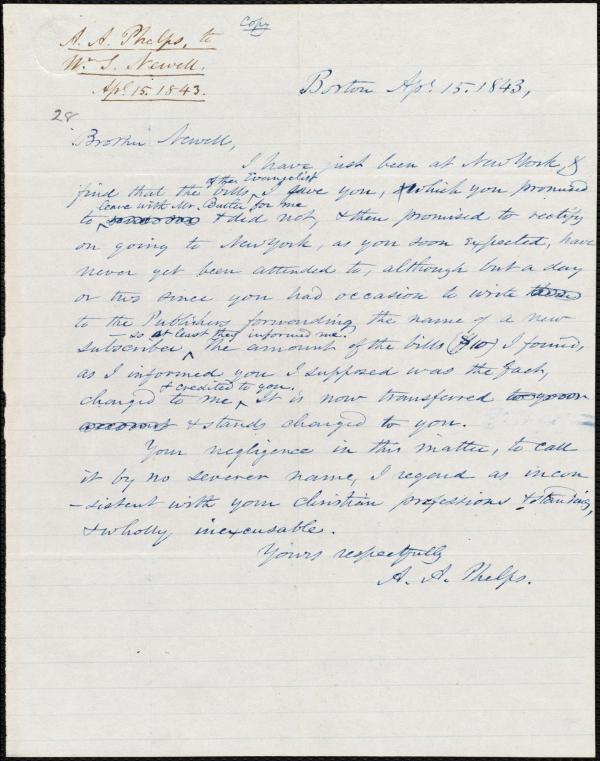 Copy
A. A. Phelps, to
Wm. S. Newell.
Apl. 15. 1843.
28
Boston Apl. 15. 1843,
Brother Newell,
I have just been at New York, &
of the Evangelist
find that the bills, I gave you, which you promised
leave with Mr. Butler for me
to & did not, & then promised to rectify
on going to New York, as you soon expected, have
never yet been attended to, although but a day
or two since you had occasion to write
to the Publishers forwarding the name of a new
- so at least they informed me.
subscriber. The amount of the bills ($10) I found,
as I informed you I supposed was the fact,
& credited to you.
charged to me, It is now transferred to your
account & stands charged to you.
Your negligence in this matter, to call
it by no severer name, I regard as incon
-sistent with your christian professions & standing,
& wholly inexcusable.
Yours respectfully
A. A. Phelps.